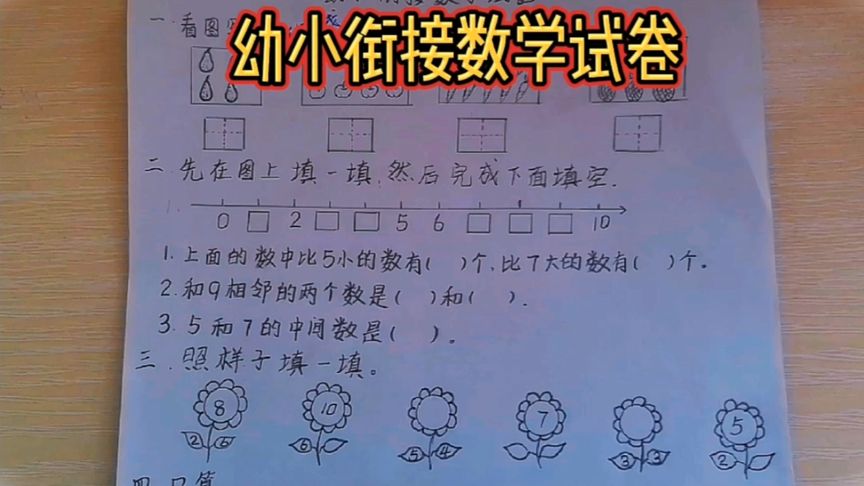 幼小衔接数学试卷
一.看图
二.先在图上填一填,然后完成下面填空.
0 2 5 6 10
1.上面的数中比5小的数有( )个,比7大的数有( )个。
2.和9相邻的两个数是( )和( ).
3.5和7的中间数是( )。
三.照样子填一填。
8 10 7 5
2 6 6 5 4 3 3 2
四.口算